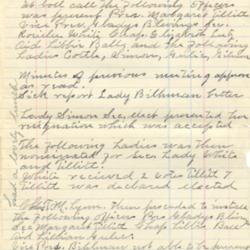 At roll call the following officers
was present Pres. Margaret Tillitt
Vice Pres. Gladys Blevins Sec
Rosilee White Chap. Elizabeth Lutz
and the following
Ladies Cottle, Simon,
Minutes of previous meeting approv
as read.
Sick report Lady Billman better
Lady Simon Sec, elect presented her
resignation which was accepted
The following Ladies was then
nominated for Sec. Lady White
and Tillitt
White recived 2 votes Tillitt 7
Tillitt was declared elected
Lynn. Then proceeded to install
the following officers Pres Gladys Blevins
Sec Margaret Tillitt Chap Lillie Ball
Billman not able to be